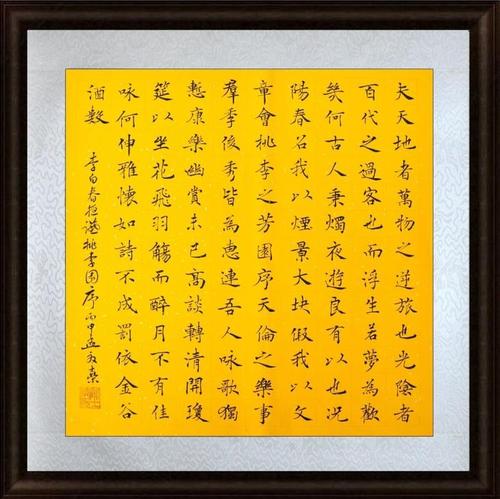 夫天地者萬物之逆旅也光陰者
百代之過客也而浮生若夢為歡
幾何古人秉燭夜遊良有以也況
陽春召我以煙景大块假我以文
章會桃李之芳園序天倫之樂事
羣季俊秀皆為惠連吾人咏歌獨
慙康樂幽賞未已高談轉清開瓊
筵以坐花飛羽觴而醉月不有佳
咏何伸雅懷如詩不成罰依金谷
酒數
李白春夜讌桃李園序丙申孟夏